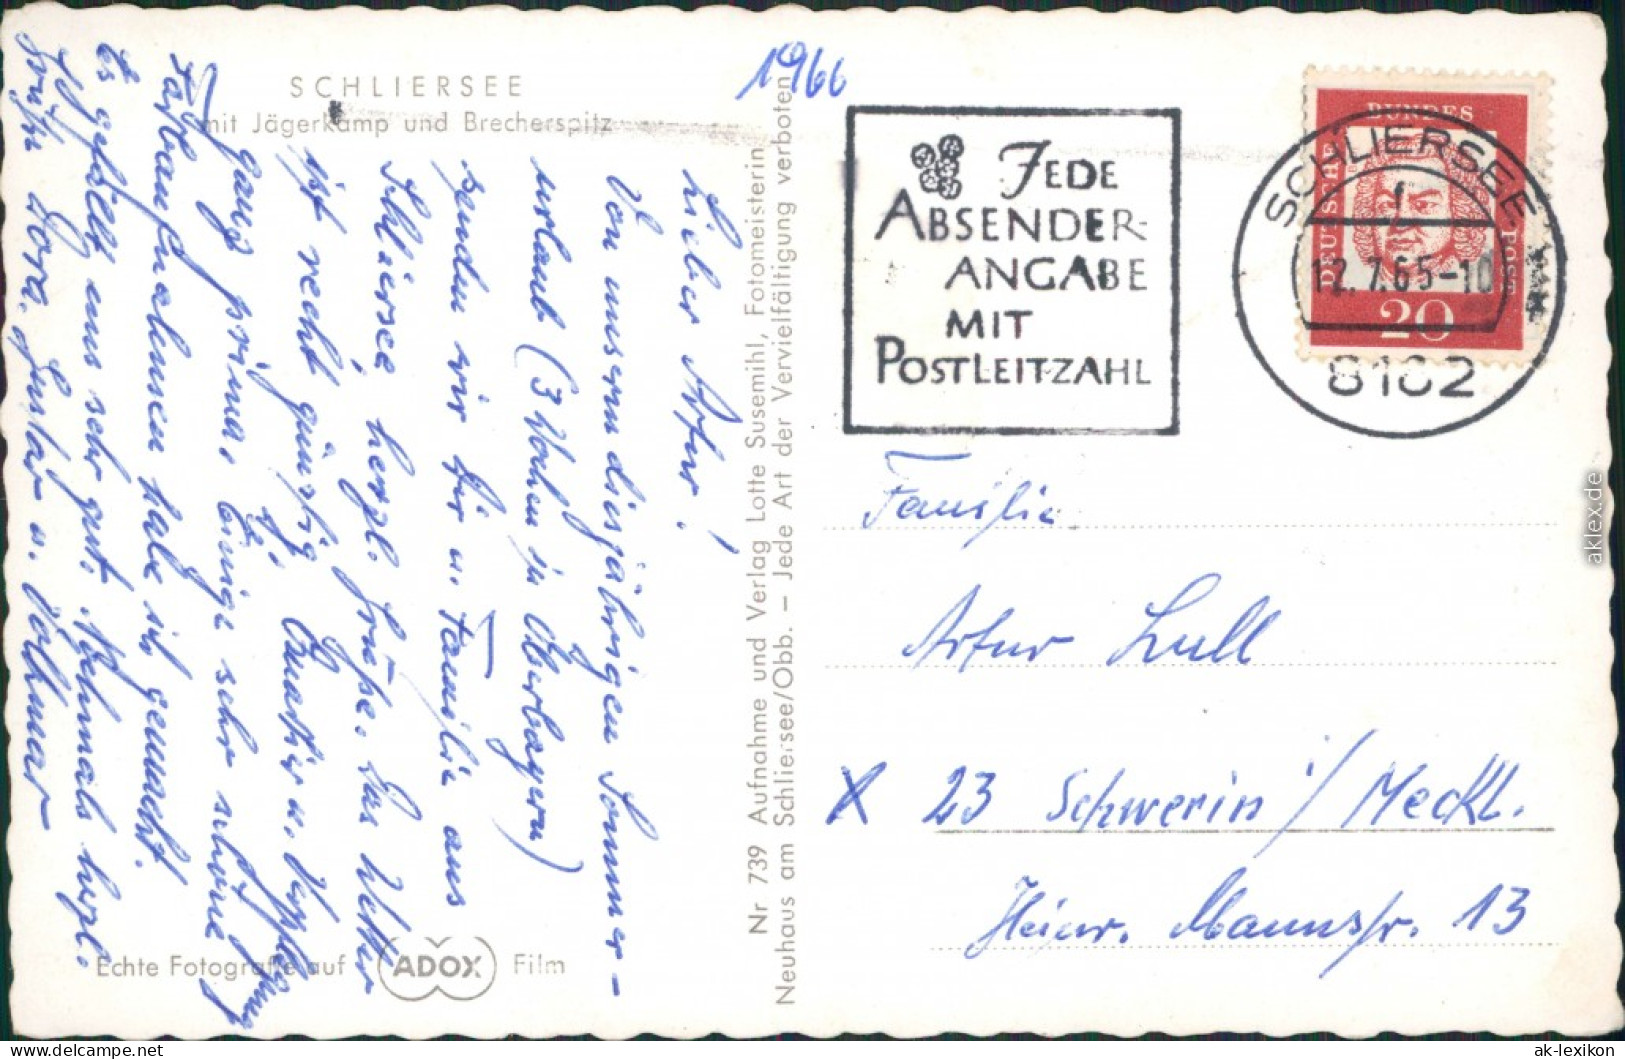 SCHLIERSEE
mit Jägerkamp und Brecherspitz
1966
Lieber Artur!
Von unserem diesjährigen Sommer-
urlaub (3 Wochen in Oberbayern)
senden wir Dir u. Familie aus
Schliersee herzl. Grüße. Das Wetter
ist recht günstig. Quartier u. Verpflegung
ganz prima. Einige sehr schöne
Farbaufnahmen habe ich gemacht.
Es gefällt uns sehr gut. Nochmals herzl.
Grüße Dora, Gustav u. Volkmar
Echte Fotografie auf ADOX Film
Nr 739 Aufnahme und Verlag Lotte Susemihl, Fotomeisterin,
Neuhaus am Schliersee/Obb. – Jede Art der Vervielfältigung verboten
JEDE
ABSENDER-
ANGABE
MIT
POSTLEITZAHL
SCHLIERSEE
12.7.65-10
8162
DEUTSCHE BUNDESPOST
20
Familie
Artur Lull
X 23 Schwerin i/Meckl.
Heinr. Mannstr. 13
aklex.de
delcampe.net
ak-lexikon